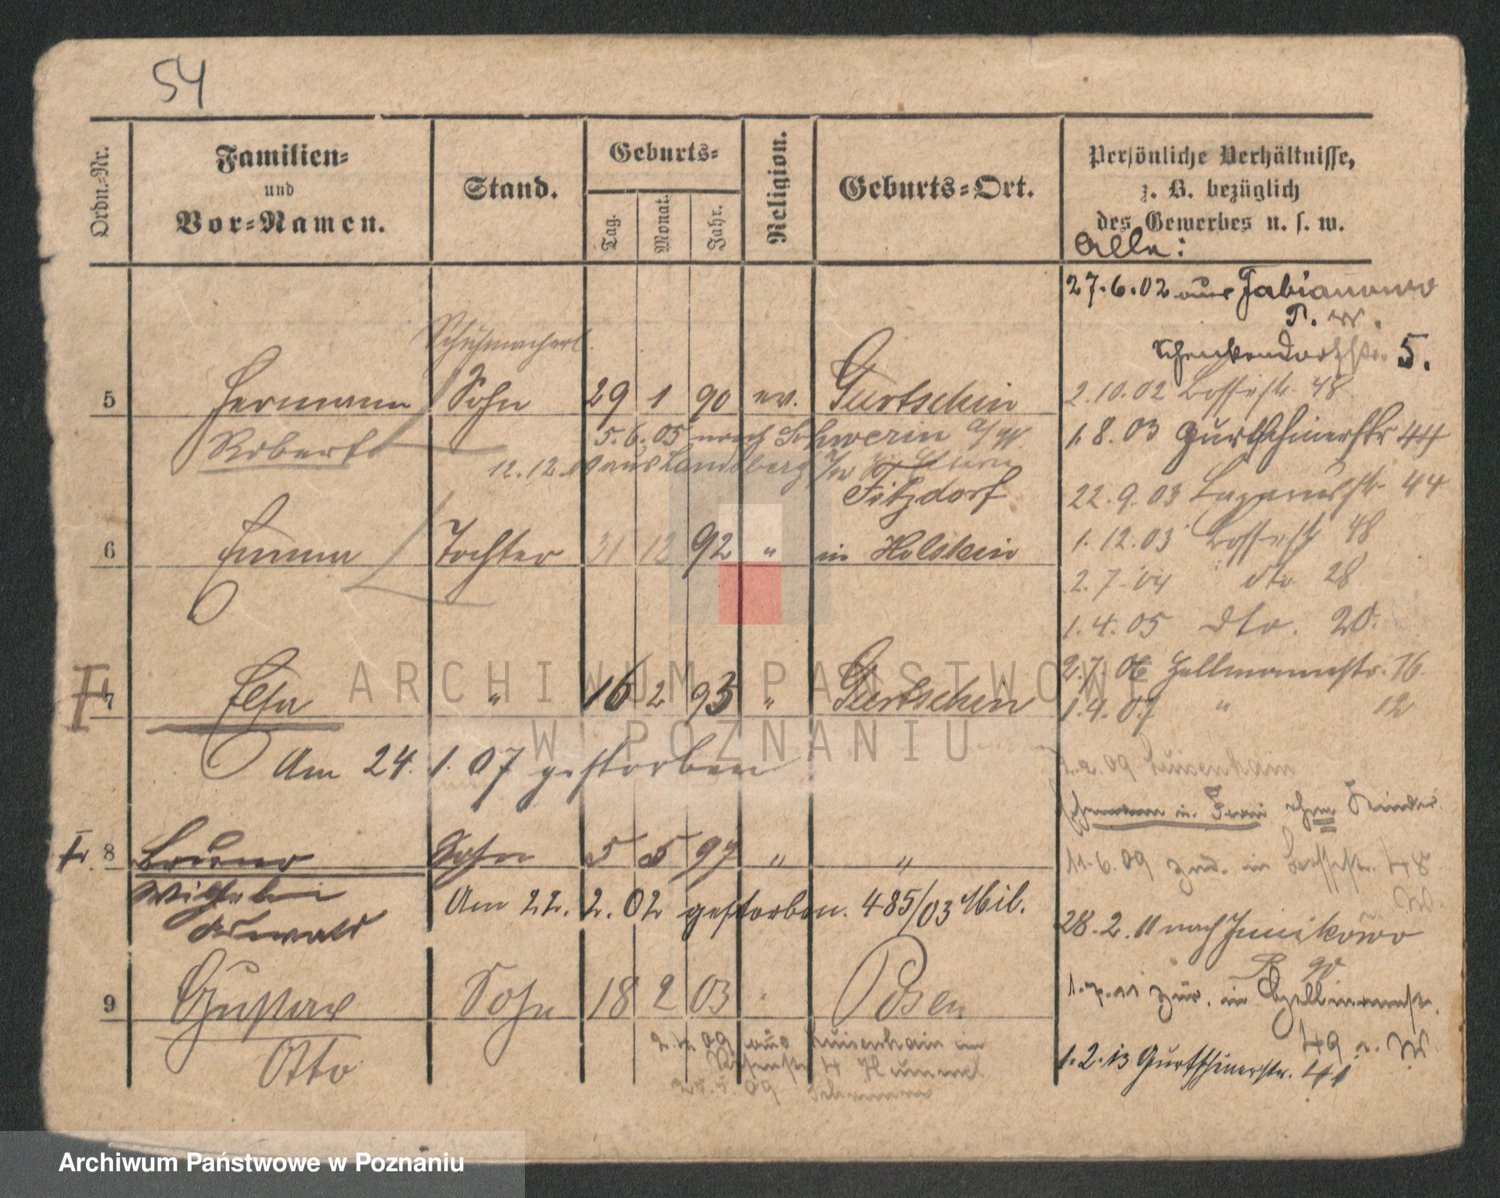 54
Ordn.-Nr.
Familien-
und
Vor-Namen.
Stand.
Geburts-
Tag.
Monat.
Jahr.
Religion.
Geburts-Ort.
Persönliche Verhältnisse,
z. B. bezüglich
des Gewerbes u. s. w.
Alle:
27.6.02 aus Fabianowo
P. W.
Schenkendorfstr. 5.
Schuhmacherl.
5 Hermann Sohn 29 1 90 ev. Gurtschin
Robert
5.6.05 nach Schwerin a/W
12.12. aus Landsberg a/W
Fitzdorf
6 Emma Tochter 31 12 92 " in Holstein
7 Elsa " 16 2 93 " Gurtschin
Am 24. 1. 07 gestorben
8 Bruno Sohn 5 5 97 " "
Wilhelm
Oswald
Am 22. 2. 02 gestorben. 485/03 Mil.
9 Gustav Sohn 18 2 03 Posen
Otto
09 aus Luisenhain
4 Hummel
25.5.09
2.10.02 Bossestr. 48
1.8.03 Gurtschinerstr 44
22.9.03 Lazarusstr. 44
1.12.03 Bossestr 48
2.7.04 dto 28
1.4.05 dto. 20.
2.7.06 Hellmannstr. 16
1.4.07 " 12
09 Luisenhain
Ehemann u. Frau ohne Kinder
11.6.09 zur. in Bossestr. 48
W.
28.2.11 nach Junikowo
P. 90
zur. in Hellmannstr.
49 W.
1.2.13 Gurtschinerstr. 41
ARCHIWUM PAŃSTWOWE
W POZNANIU
Archiwum Państwowe w Poznaniu